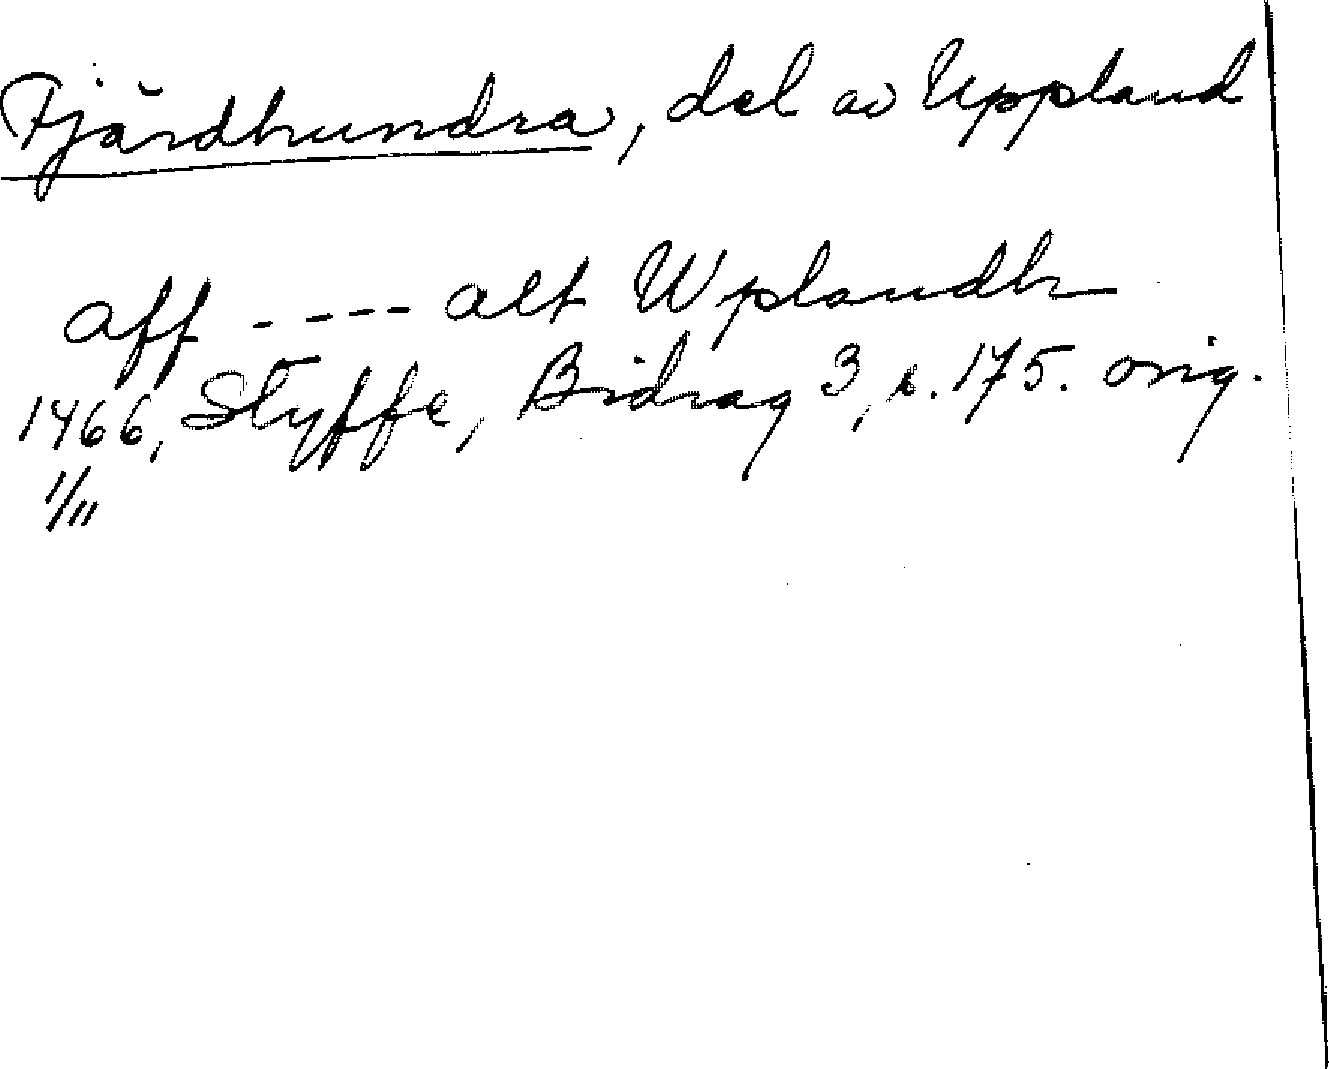 Fjärdhundra, del av Uppland
aff ---- alt Wplandh
1466, Styffe, Bidrag 3, s. 175. orig.
1/11